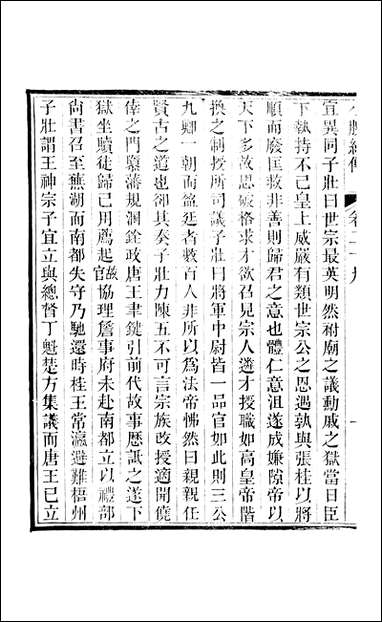 小腆紀傳 卷二十九 一
宜異同子壯曰世宗最英明然祔廟之議勳戚之獄當日臣
下執持不已皇上威嚴有類世宗公之恩遇孰與張桂以將
順而廢匡救非善則歸君之意也體仁意沮遂成嫌隙帝以
天下多故思破格求才欲召見宗人遴才授職如高皇帝階
換之制授所司議子壯曰將軍中尉皆一品官如此則三公
九卿一朝而盈廷者數百人非所以為法帝怫然曰親親任
賢古之道也卻其奏子壯力陳五不可言宗族改授適開僥
倖之門隳藩規溷銓政唐王聿鍵引前代故事歷詆之遂下
獄坐贖徒歸已用薦起故官協理詹事府未赴南都立以禮部
尚書召至蕪湖而南都失守乃馳還時桂王常瀛避難梧州
子壯謂王神宗子宜立與總督丁魁楚方集議而唐王已立